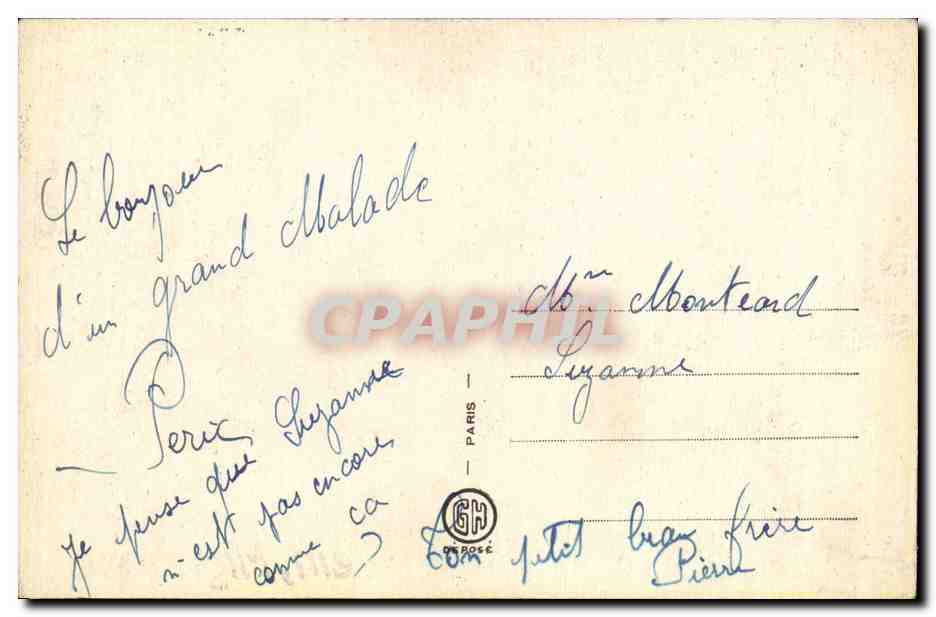 Le bonjour
d'un grand Malade
Je pense que Suzanne
n'est pas encore
comme ca ?
Mme
Suzanne
CPAPHIL
PARIS
GH
DÉPOSÉ
Ton petit beau frère
Pierre